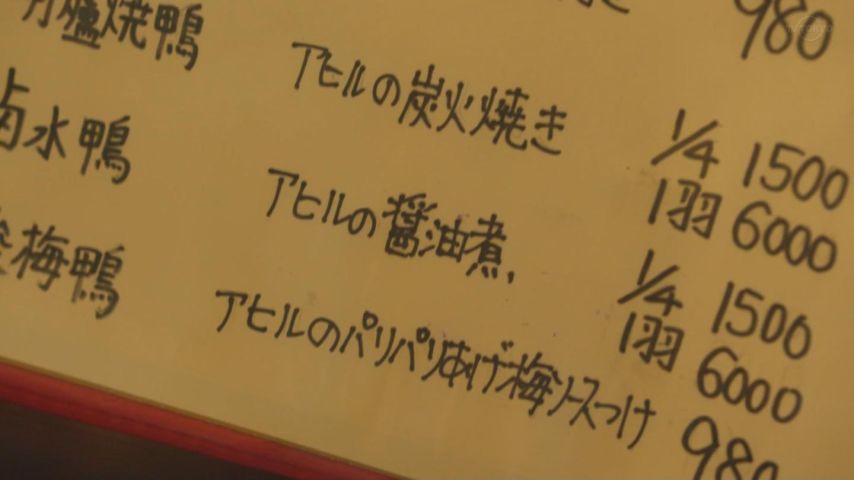 980
爐焼鴨 アヒルの炭火焼き 1/4 1500
1羽 6000
水鴨 アヒルの醤油煮 1/4 1500
1羽 6000
梅鴨 アヒルのパリパリあげ梅ソースつけ 980